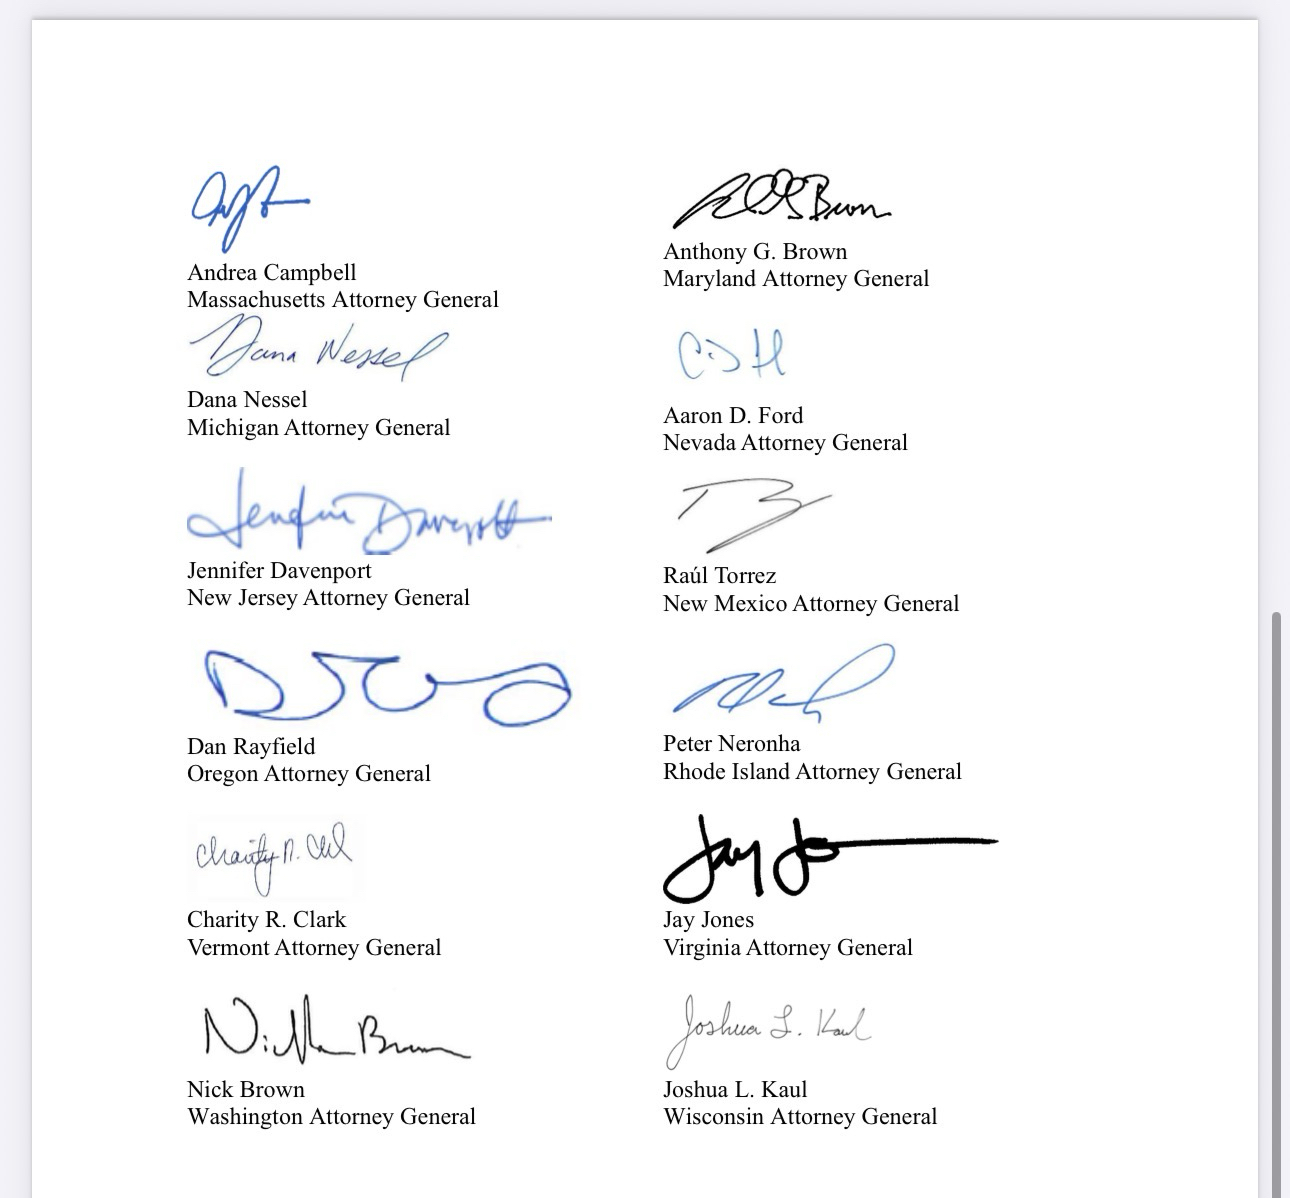 Andrea Campbell
Massachusetts Attorney General
Brown
Anthony G. Brown
Maryland Attorney General
Dana Nessel
Dana Nessel
Michigan Attorney General
Aaron D. Ford
Nevada Attorney General
Jennifer Davenport
Jennifer Davenport
New Jersey Attorney General
Raúl Torrez
New Mexico Attorney General
Dan Rayfield
Oregon Attorney General
Peter Neronha
Rhode Island Attorney General
Charity R. Clark
Vermont Attorney General
Jay Jones
Virginia Attorney General
Brown
Nick Brown
Washington Attorney General
Joshua L. Kaul
Joshua L. Kaul
Wisconsin Attorney General